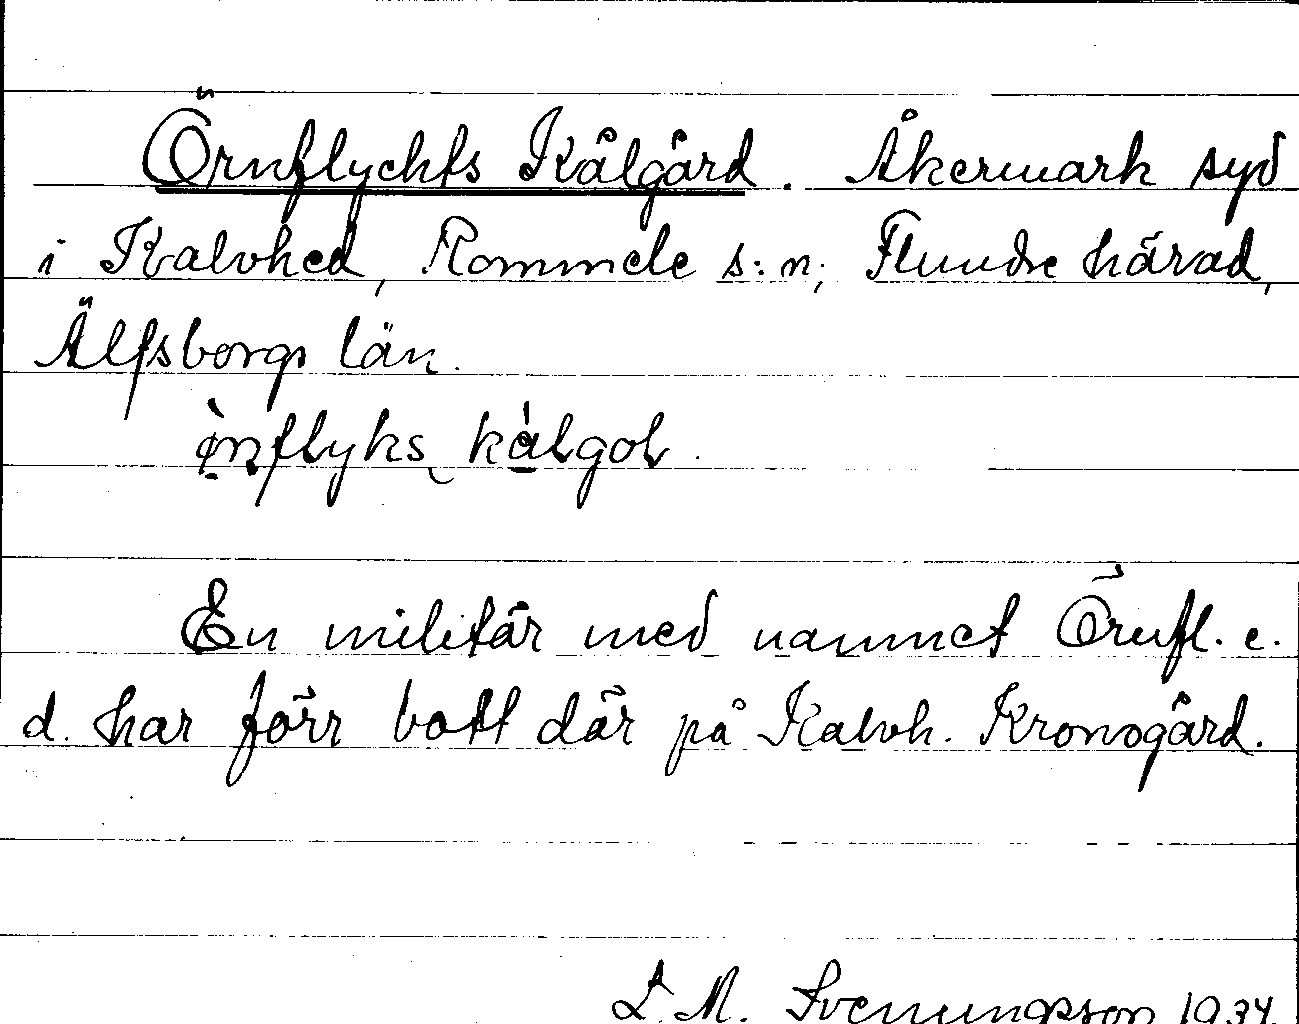 Örnflychts Kålgård. Åkermark syd
i Kalvhed, Rommele s:n, Flundre härad,
Älfsborgs län.
kålgol.
En militär med namnet Örnfl. e.
d. har förr bott där på Kalvh. Kronogård.
D. M. Svenungsson 1934.